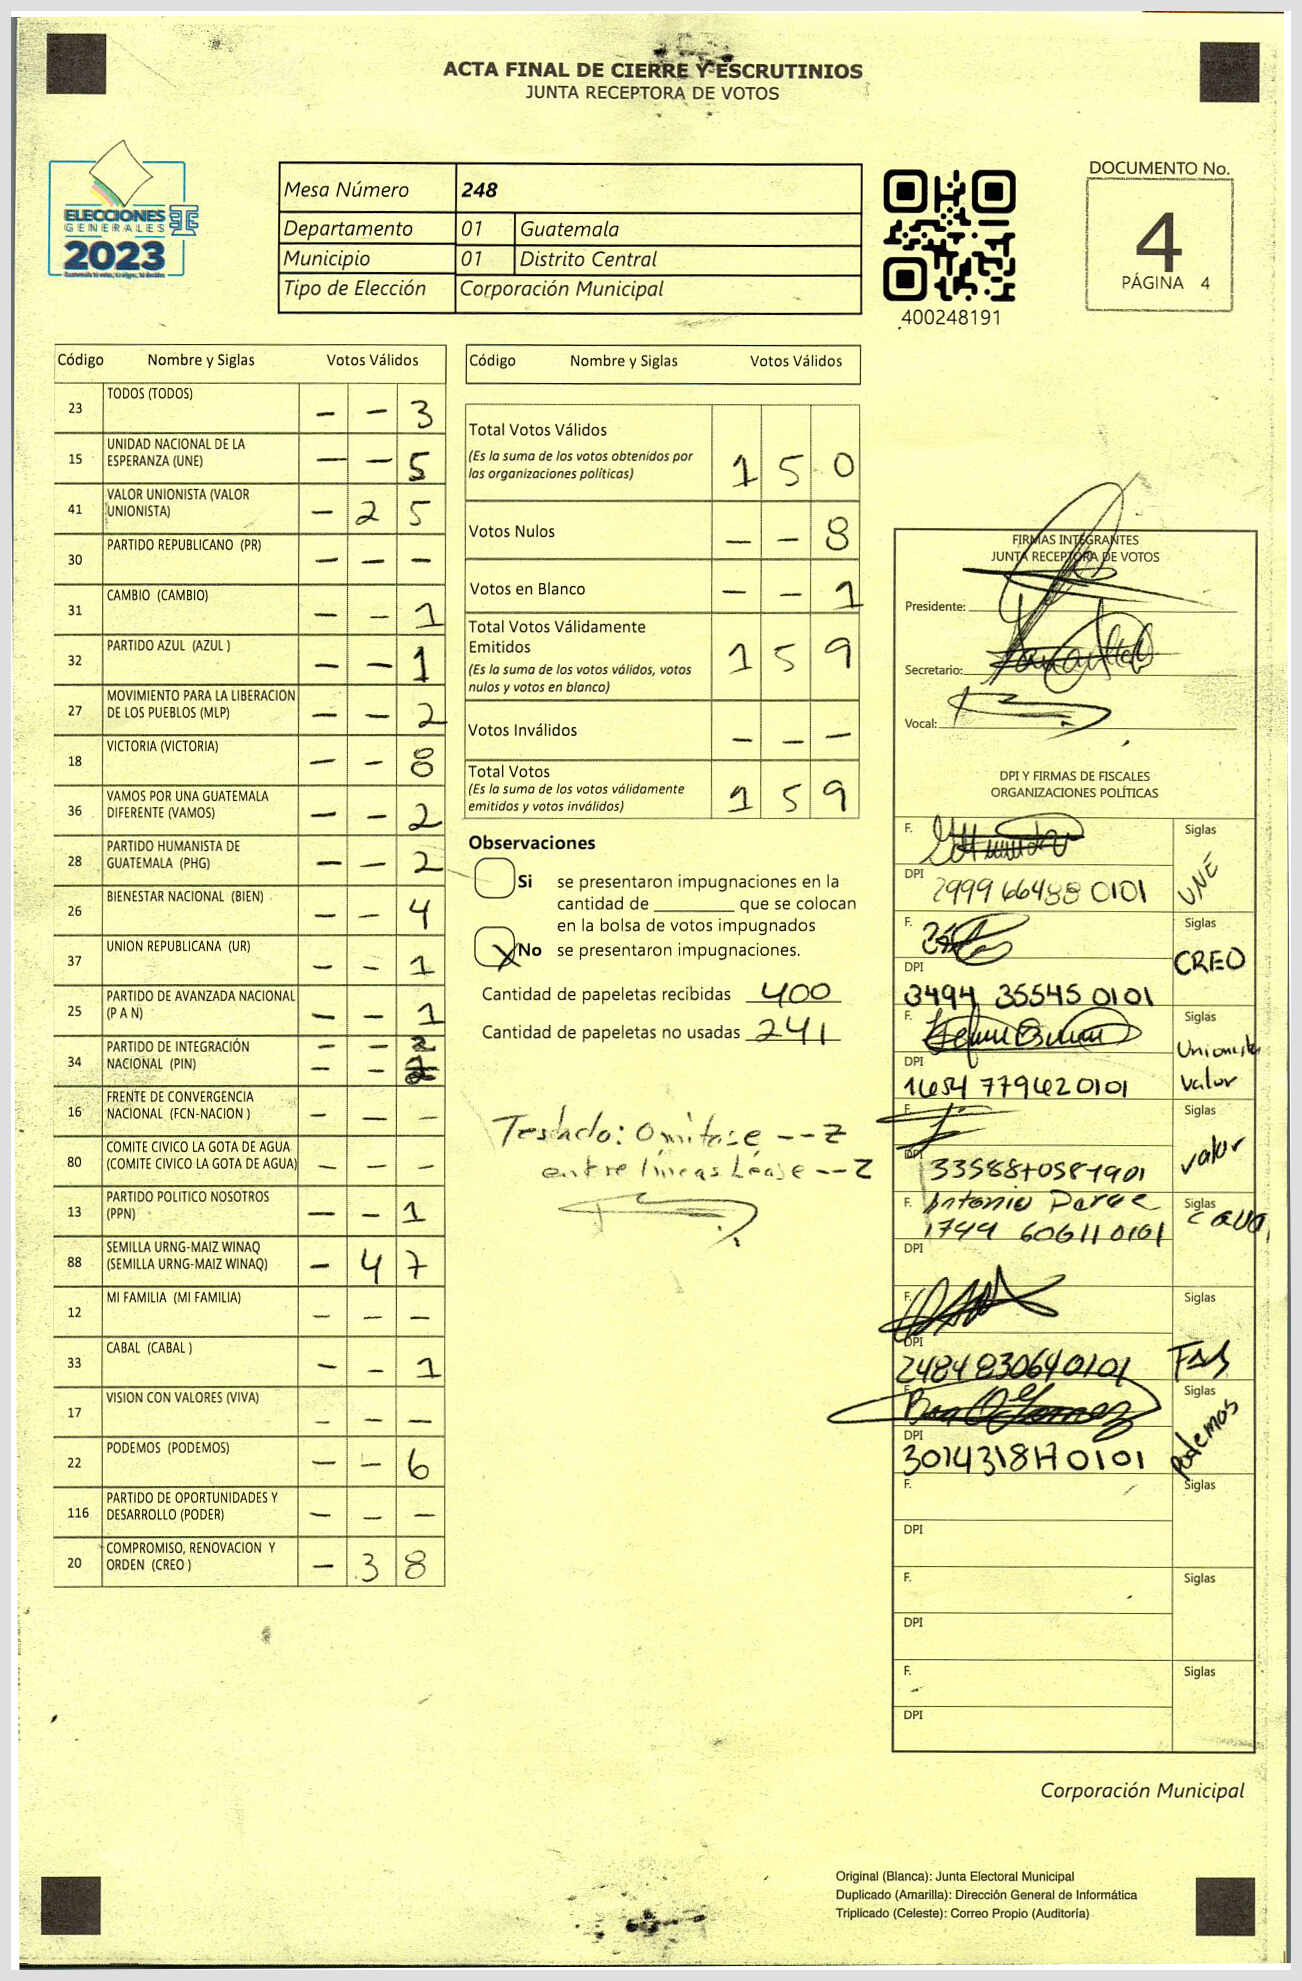 ACTA FINAL DE CIERRE Y ESCRUTINIOS
JUNTA RECEPTORA DE VOTOS
ELECCIONES
GENERALES
2023
Mesa Número 248
Departamento 01 Guatemala
Municipio 01 Distrito Central
Tipo de Elección Corporación Municipal
400248191
DOCUMENTO No.
4
PÁGINA 4
Código Nombre y Siglas Votos Válidos
23 TODOS (TODOS) — — 3
15 UNIDAD NACIONAL DE LA
ESPERANZA (UNE) — — 5
41 VALOR UNIONISTA (VALOR
UNIONISTA) — 2 5
30 PARTIDO REPUBLICANO (PR) — — —
31 CAMBIO (CAMBIO) — — 1
32 PARTIDO AZUL (AZUL ) — — 1
27 MOVIMIENTO PARA LA LIBERACION
DE LOS PUEBLOS (MLP) — — 2
18 VICTORIA (VICTORIA) — — 8
36 VAMOS POR UNA GUATEMALA
DIFERENTE (VAMOS) — — 2
28 PARTIDO HUMANISTA DE
GUATEMALA (PHG) — — 2
26 BIENESTAR NACIONAL (BIEN) — — 4
37 UNION REPUBLICANA (UR) — — 1
25 PARTIDO DE AVANZADA NACIONAL
(P A N) — — 1
34 PARTIDO DE INTEGRACIÓN — — 2
NACIONAL (PIN) — — 2
16 FRENTE DE CONVERGENCIA
NACIONAL (FCN-NACION ) — — —
80 COMITE CIVICO LA GOTA DE AGUA
(COMITE CIVICO LA GOTA DE AGUA) — — —
13 PARTIDO POLITICO NOSOTROS
(PPN) — — 1
88 SEMILLA URNG-MAIZ WINAQ
(SEMILLA URNG-MAIZ WINAQ) — 4 7
12 MI FAMILIA (MI FAMILIA) — — —
33 CABAL (CABAL ) — — 1
17 VISION CON VALORES (VIVA) — — —
22 PODEMOS (PODEMOS) — — 6
116 PARTIDO DE OPORTUNIDADES Y
DESARROLLO (PODER) — — —
20 COMPROMISO, RENOVACION Y
ORDEN (CREO ) — 3 8
Código Nombre y Siglas Votos Válidos
Total Votos Válidos
(Es la suma de los votos obtenidos por
las organizaciones políticas) 1 5 0
Votos Nulos — — 8
Votos en Blanco — — 1
Total Votos Válidamente
Emitidos 1 5 9
(Es la suma de los votos válidos, votos
nulos y votos en blanco)
Votos Inválidos — — —
Total Votos
(Es la suma de los votos válidamente
emitidos y votos inválidos) 1 5 9
Observaciones
Si se presentaron impugnaciones en la
cantidad de ________ que se colocan
en la bolsa de votos impugnados
X No se presentaron impugnaciones.
Cantidad de papeletas recibidas 400
Cantidad de papeletas no usadas 241
Testado: Omitase -- 2
entre líneas Léase -- 2
FIRMAS INTEGRANTES
JUNTA RECEPTORA DE VOTOS
Presidente:
Secretario:
Vocal:
DPI Y FIRMAS DE FISCALES
ORGANIZACIONES POLÍTICAS
F. Siglas
DPI 2999 66488 0101 UNE
F. Siglas
DPI CREO
3494 35545 0101
F. Siglas
Unionista
DPI
1654 77962 0101 valor
F. Siglas
DPI valor
F. Antonio Siglas
1744 60611 0101
DPI
F. Siglas
DPI
2484 83064 0101
F. Siglas
DPI Podemos
F. Siglas
DPI
F. Siglas
DPI
F. Siglas
DPI
Corporación Municipal
Original (Blanca): Junta Electoral Municipal
Duplicado (Amarilla): Dirección General de Informática
Triplicado (Celeste): Correo Propio (Auditoría)